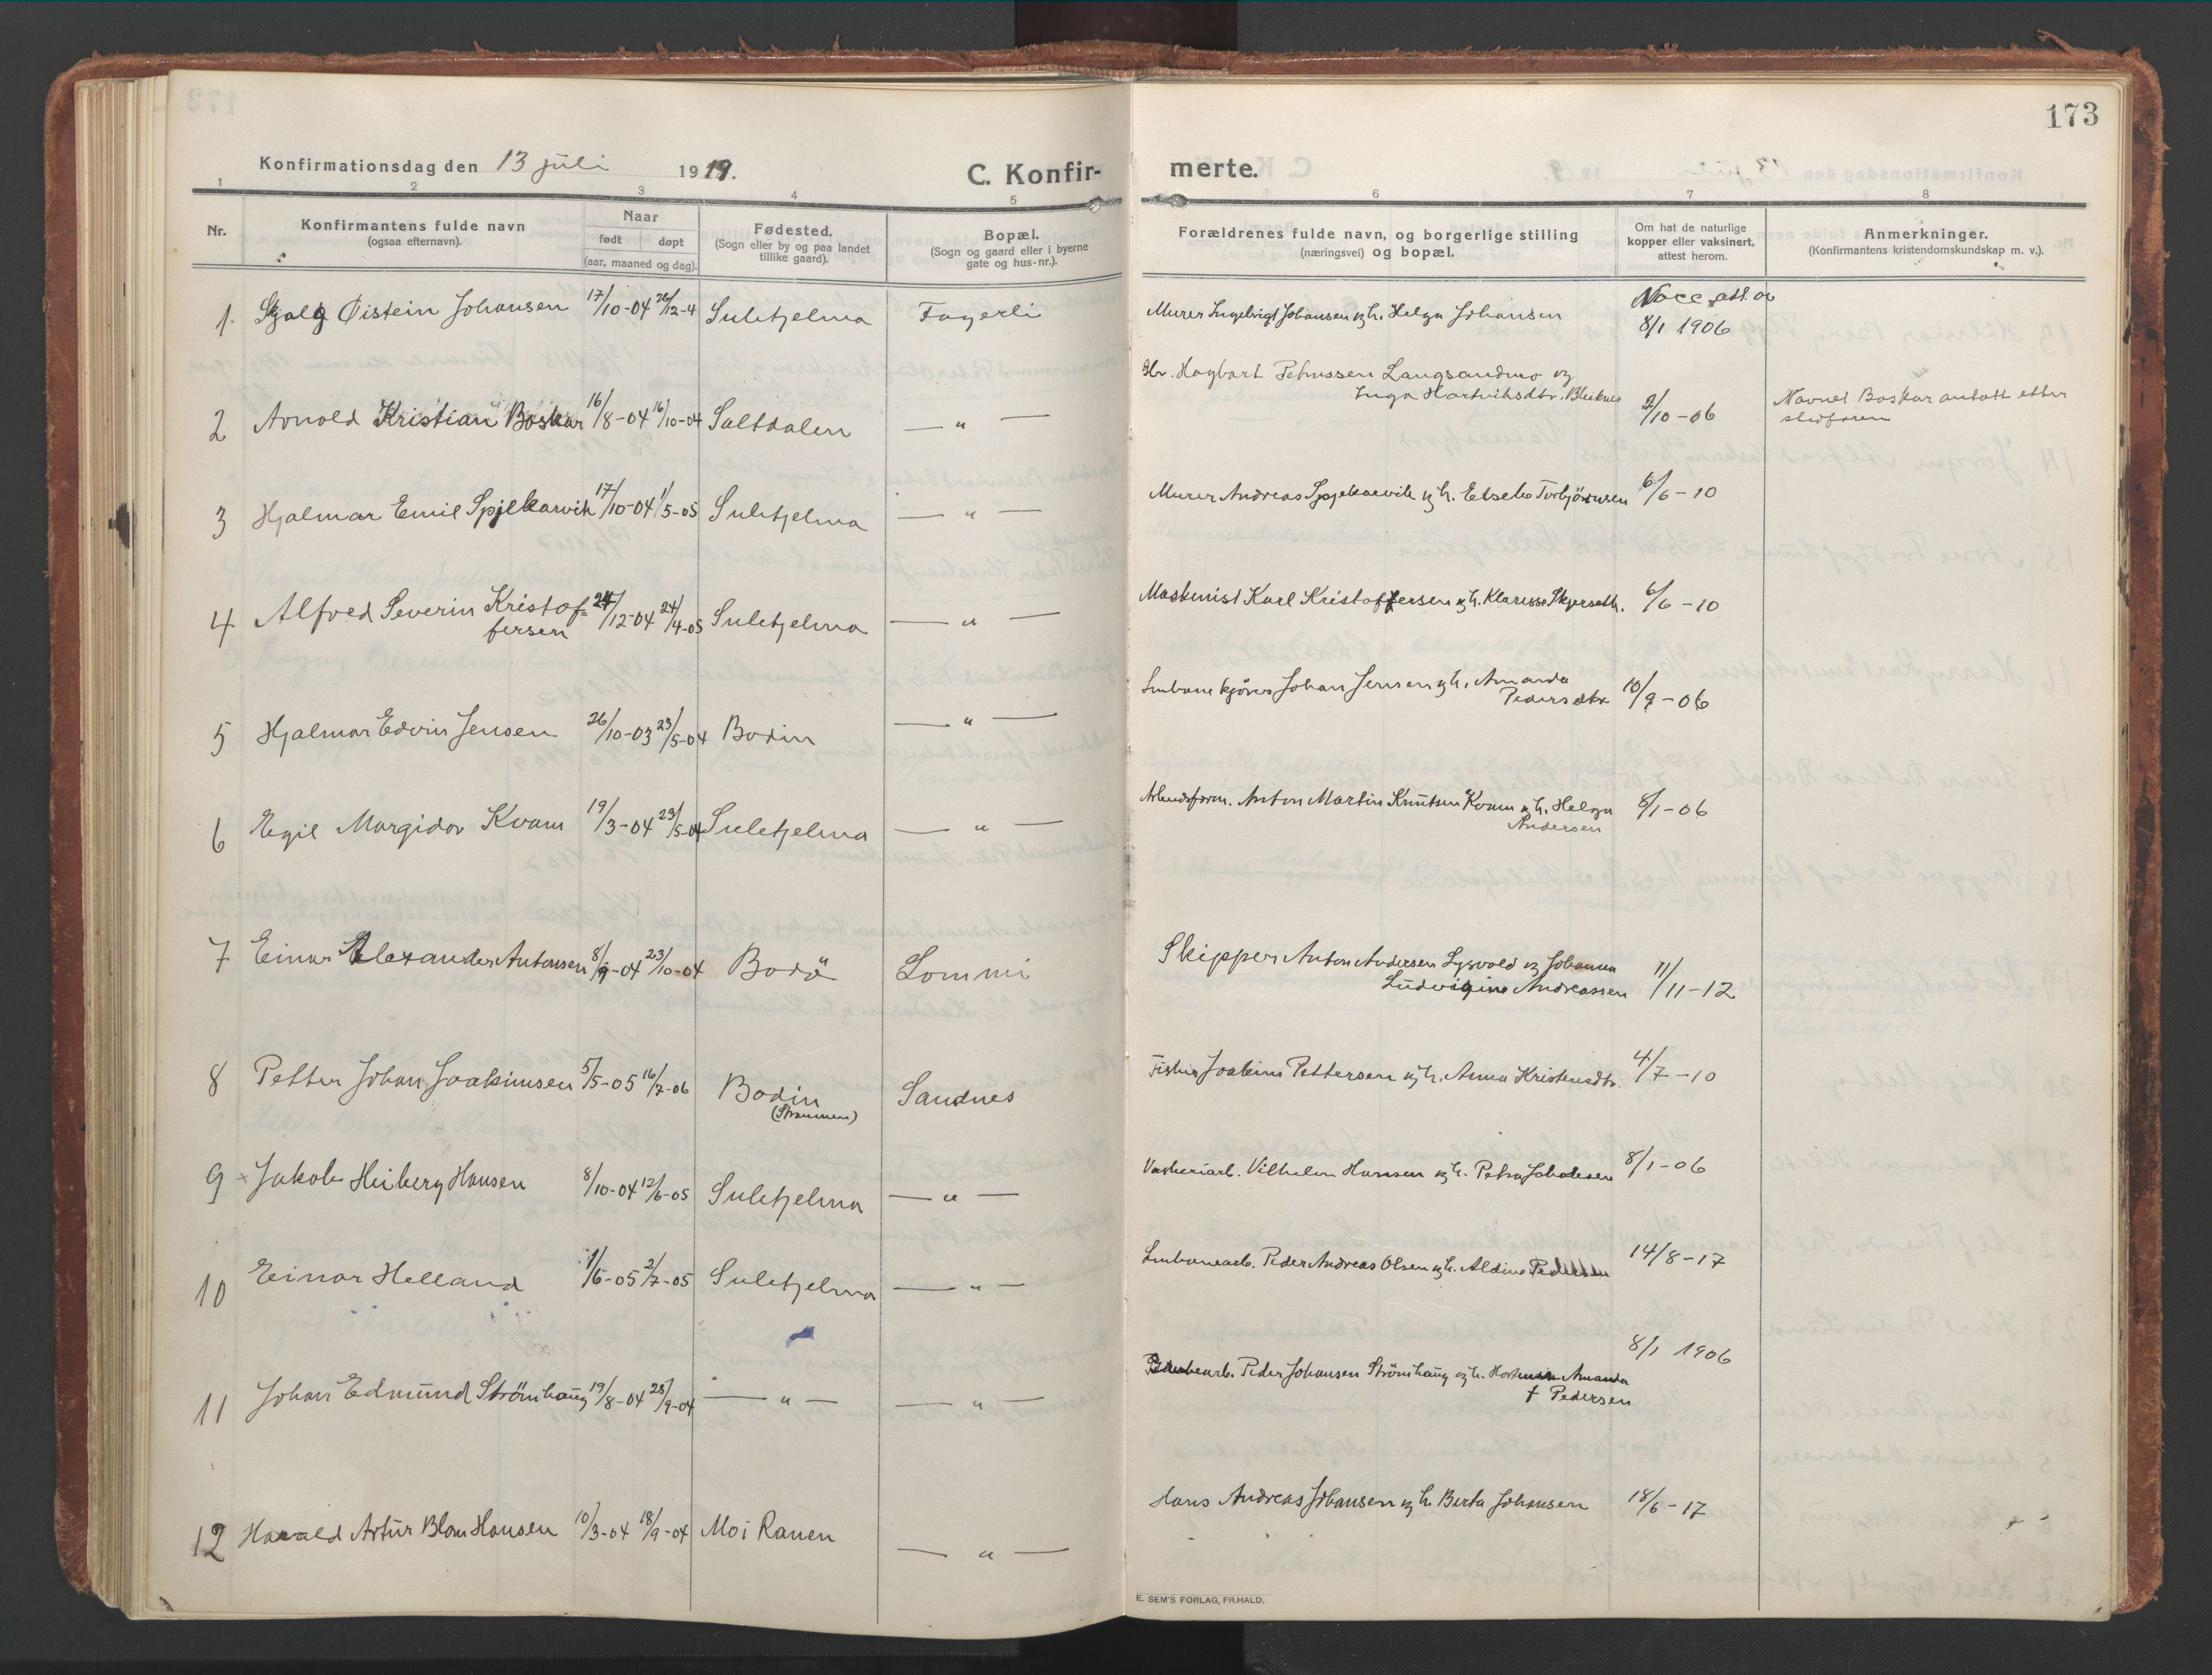 173
Konfirmationsdag den 13 juli 1919.
C. Konfir-
merte.
1 2 3 4 5 6 7 8
Nr.
Konfirmantens fulde navn
(ogsaa efternavn).
Naar
født døpt
(aar, maaned og dag).
Fødested.
(Sogn eller by og paa landet
tillike gaard).
Bopæl.
(Sogn og gaard eller i byerne
gate og hus-nr.).
Forældrenes fulde navn, og borgerlige stilling
(næringsvei) og bopæl.
Om hat de naturlige
kopper eller vaksinert,
attest herom.
Anmerkninger.
(Konfirmantens kristendomskundskap m. v.).
1. Skjalg Øistein Johansen 17/10-04 26/12-4 Sulitjelma Fagerli Murer Ingebrigt Johansen og h. Helga Johansen Vacc. att. av
8/1 1906
Hagbart Petrussen Langsandmo og
2 Arnold Kristian Boskar 16/8-04 16/10-04 Saltdalen — " — Inga Hartvihsdtr. Bleiknes 2/10-06 Navnet Boskar antatt etter
stedfaren
3 Hjalmar Emil Spjelkarvik 17/10-04 1/5-05 Sulitjelma — " — Murer Andreas Spjelkarvik og h. Elsebe Torbjörnsen 6/6-10
4 Alfred Severin Kristof=
fersen 24/12-04 24/4-05 Sulitjelma — " — Maskinist Karl Kristoffersen og h. Klarisse Skjerseth. 6/6-10
5 Hjalmar Edvin Jensen 26/10-03 23/5-04 Bodin — " — kjører Johan Jensen og h. Amanda
Pedersdtr 10/9-06
6 Egil Margidor Kvam 19/3-04 23/5-04 Sulitjelma — " — Arbeidsform. Anton Martin Knutsen Kvam og h. Helga
Andersen 8/1-06
7 Einar Alexander Antonsen 8/9-04 23/10-04 Bodö Lommi Skipper Anton Andersen Lysvold og Johanna
Ludvigine Andreassen 11/11-12
8 Petter Johan Joakimsen 5/5-05 16/7-06 Bodin
(Straumen) Sandnes Fisker Joakim Pettersen og h. Anna Kristensdtr. 4/7-10
9 Jakob Heiberg Hansen 8/10-04 12/6-05 Sulitjelma — " — Vaskeriarb. Vilhelm Hansen og h. Petra 8/1-06
10 Einar Helland 1/6-05 2/7-05 Sulitjelma — " — Peder Andreas Olsen og h. Aldine Pedersen 14/8-17
11 Johan Edmund Strömhaug 19/8-04 28/9-04 — " — — " — Peder Johansen Strömhaug og h. Amanda
† Pedersen 8/1 1906
12 Harald Artur Blom Hansen 10/3-04 18/9-04 Moi Ranen — " — Hans Andreas Johansen og h. Berta Johansen 18/6-17
E. SEM'S FORLAG, FR.HALD.